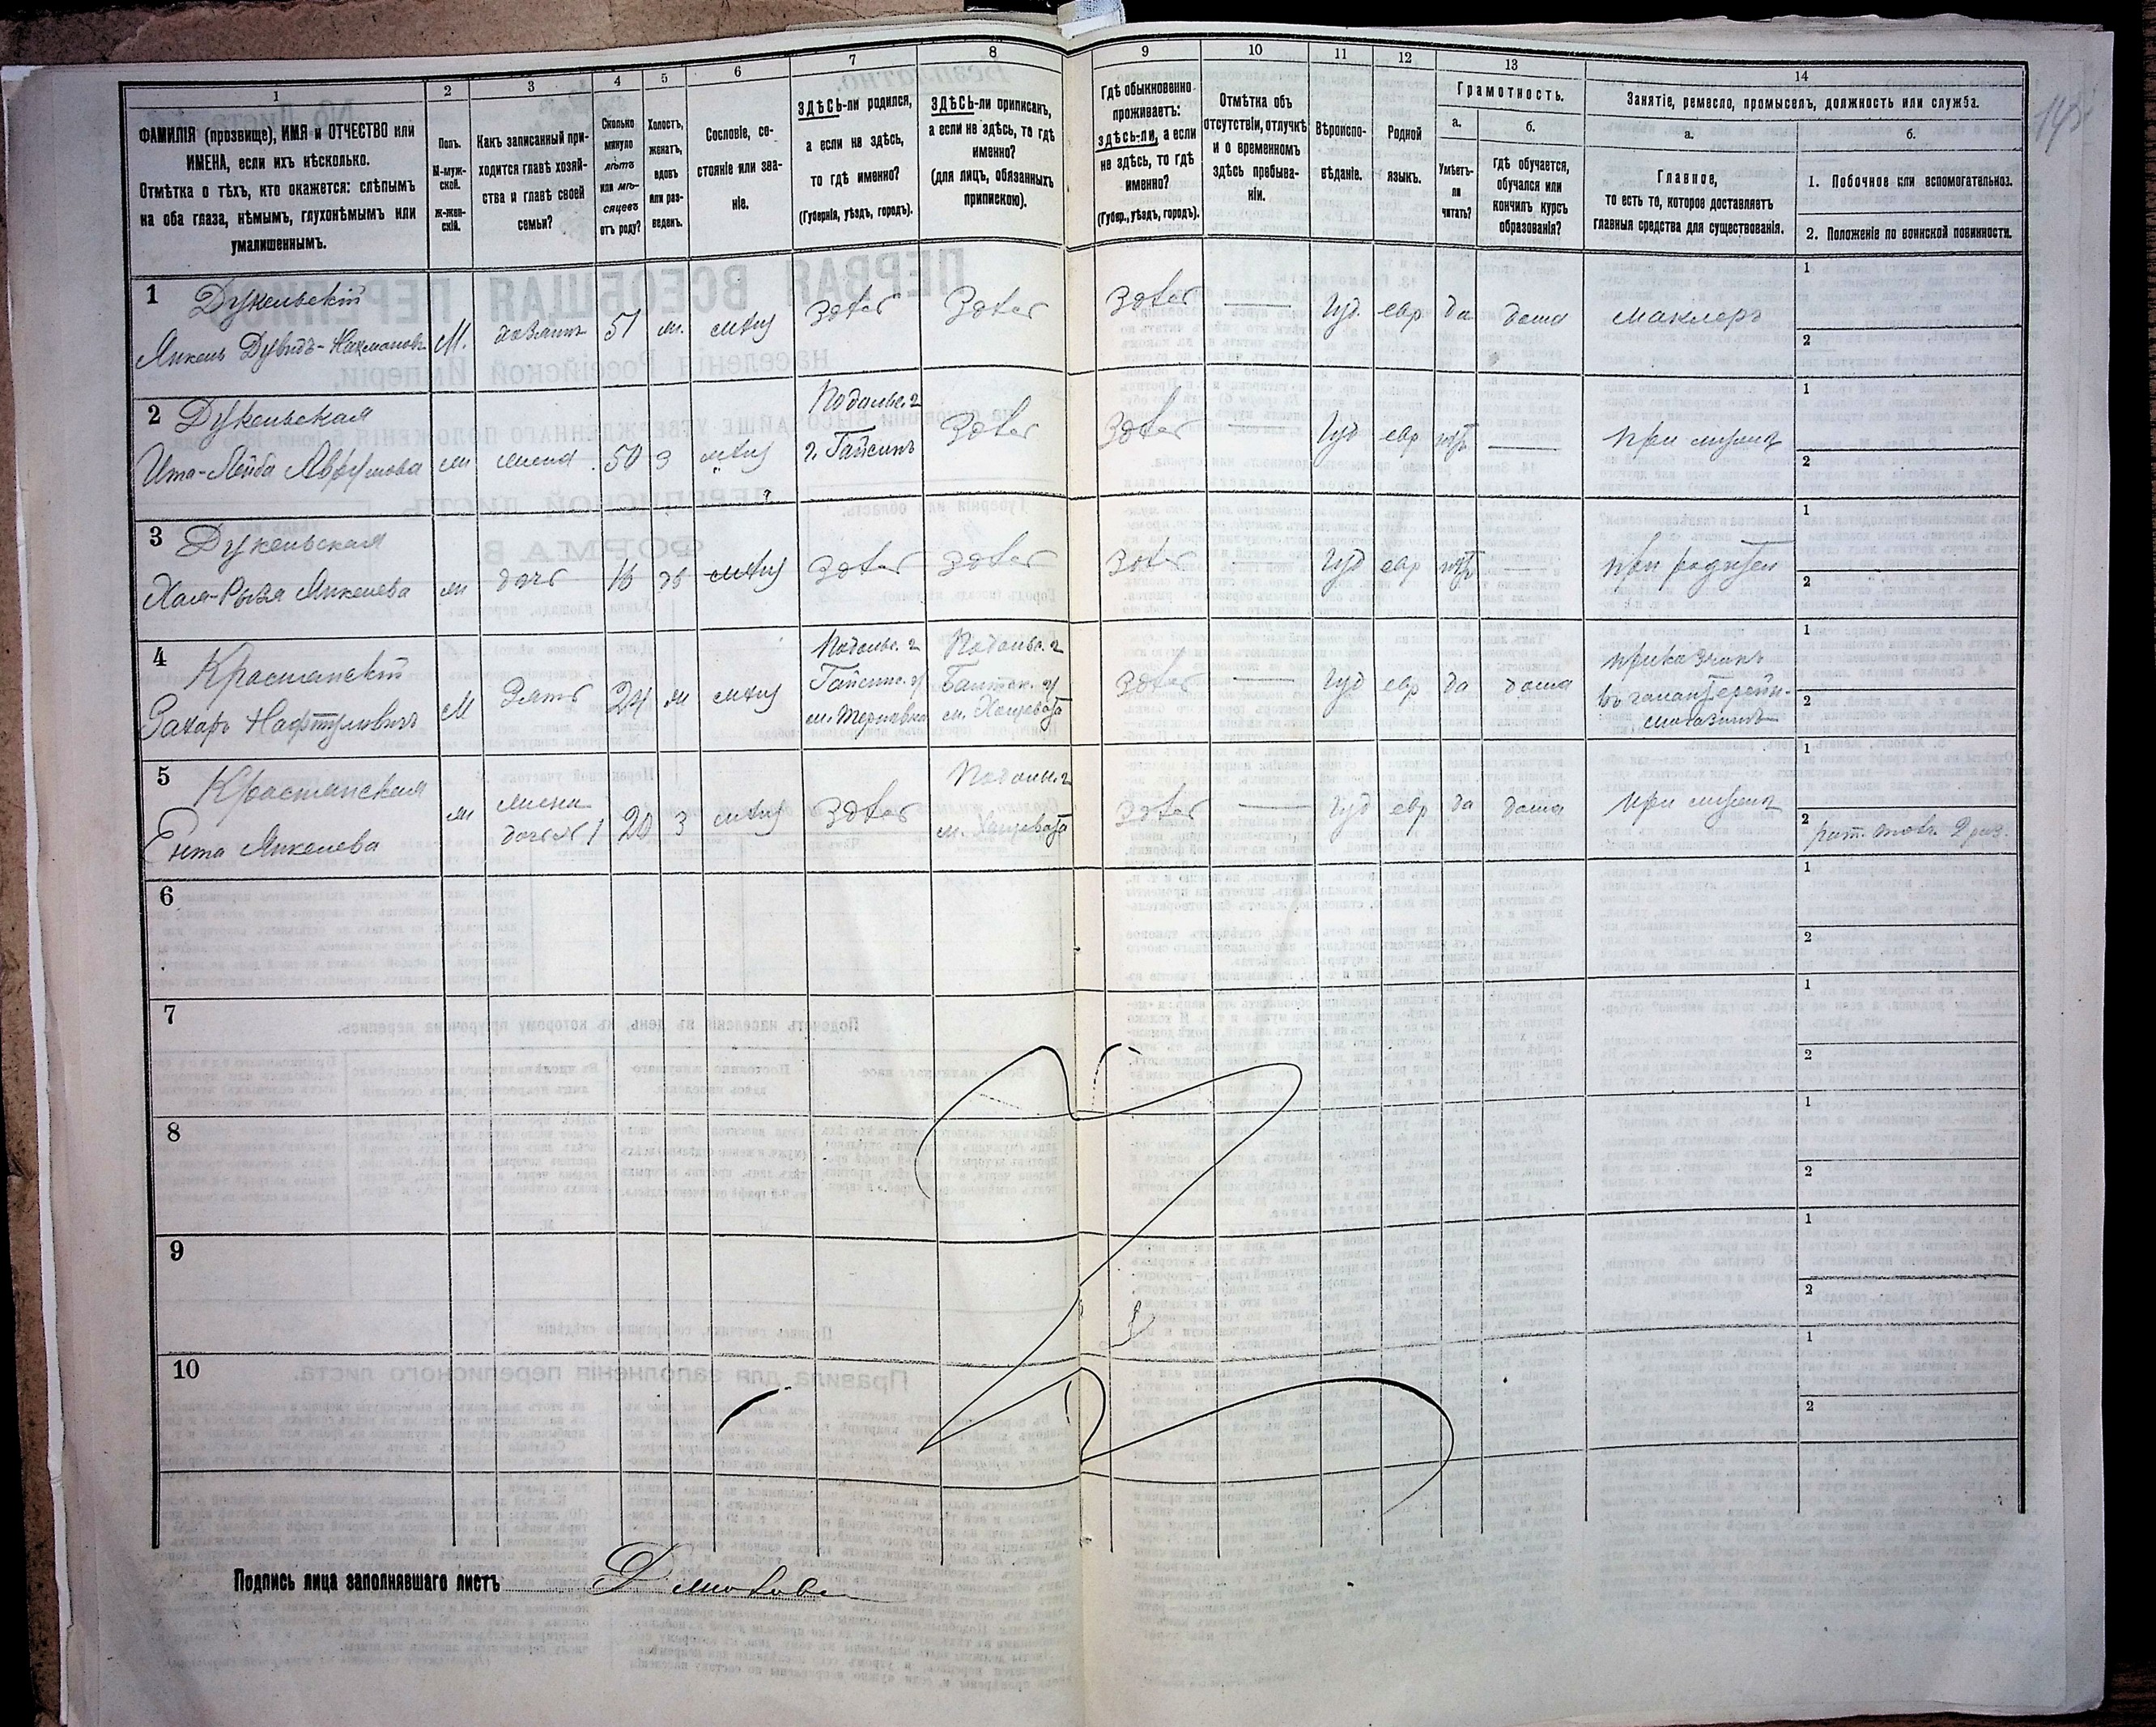 1
2
3
4
5
6
7
8
9
10
11
12
13
14
ФАМИЛІЯ (прозвище), ИМЯ и ОТЧЕСТВО или
ИМЕНА, если ихъ нѣсколько.
Отмѣтка о тѣхъ, кто окажется: слѣпымъ
на оба глаза, нѣмымъ, глухонѣмымъ или
умалишеннымъ.
Полъ.
М-муж-
ской.
ж-жен-
скій.
Какъ записанный при-
ходится главѣ хозяй-
ства и главѣ своей
семьи?
Сколько
минуло
лѣтъ
или мѣ-
сяцевъ
отъ роду?
Холостъ,
женатъ,
вдовъ
или раз-
веденъ.
Сословіе, со-
стояніе или зва-
ніе.
ЗДѢСЬ-ли родился,
а если не здѣсь,
то гдѣ именно?
(Губернія, уѣздъ, городъ).
ЗДѢСЬ-ли приписанъ,
а если не здѣсь, то гдѣ
именно?
(для лицъ, обязанныхъ
припискою).
Гдѣ обыкновенно
проживаетъ:
здѣсь-ли, а если
не здѣсь, то гдѣ
именно?
(Губер., уѣздъ, городъ).
Отмѣтка объ
отсутствіи, отлучкѣ
и о временномъ
здѣсь пребыва-
ніи.
Вѣроиспо-
вѣданіе.
Родной
языкъ.
Грамотность.
а.
Умѣетъ-
ли
читать?
б.
гдѣ обучается,
обучался или
кончилъ курсъ
образованія?
Занятіе, ремесло, промыселъ, должность или служба.
а.
Главное,
то есть то, которое доставляетъ
главныя средства для существованія.
б.
1. Побочное или вспомогательное.
2. Положеніе по воинской повинности.
1 Дукельскій
Янкель Дувидъ-Нахмановъ М. хозяинъ 51 ж. мѣщ здѣсь здѣсь здѣсь — Іуд. евр да дома маклеръ
1
2
2 Дукельская
Ита-Лейба Аврумова ж жена 50 з мѣщ Подольс. г
г. Гайсинъ здѣсь здѣсь — Іуд евр нѣтъ — при мужѣ
1
2
3 Дукельская
Хая-Рыва Янкелева ж дочь 16 дв мѣщ здѣсь здѣсь здѣсь Іуд евр нѣтъ — при родител
1
2
4
Захаръ Нафтуловичъ М Зять 24 ж мѣщ Подольс. г
Гайсинс. у
м. Терновка Подольс. г
м. Хощевата здѣсь — Іуд евр да дома приказчикъ
въ галантерейн.
магазинѣ
1
2
5
Ента Янкелева ж жена
дочь № 1 20 з мѣщ здѣсь Подольс. г
м. Хащевата здѣсь — Іуд евр да дома при мужѣ
1
2 рат. опол. 2 раз.
6
1
2
7
1
2
8
1
2
9
1
2
10
1
2
Подпись лица заполнявшаго листъ